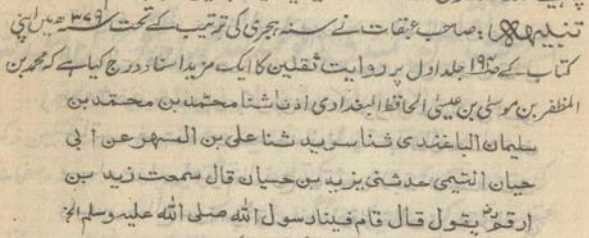 تنبیہ: صاحب عبقات نے سنہ ہجری کی ترتیب کے تحت ۳۷۹ ھ میں اپنی
کتاب کے ص۱۹۴ جلد اول پر روایت ثقلین کا ایک مزید اسناد درج کیا ہے کہ محمد بن
المظفر بن موسیٰ بن عیسیٰ الحافظ البغدادی اذناً ثنا محمد بن محمد بن
سلیمان الباغندی ثنا سرید ثنا علی بن المسهر عن ابی
حیان التیمی حدثنی یزید بن حسیان قال سمعت زید بن
ارقم رض یقول قال قام فینا رسول الله صلی الله علیه وسلم الخ